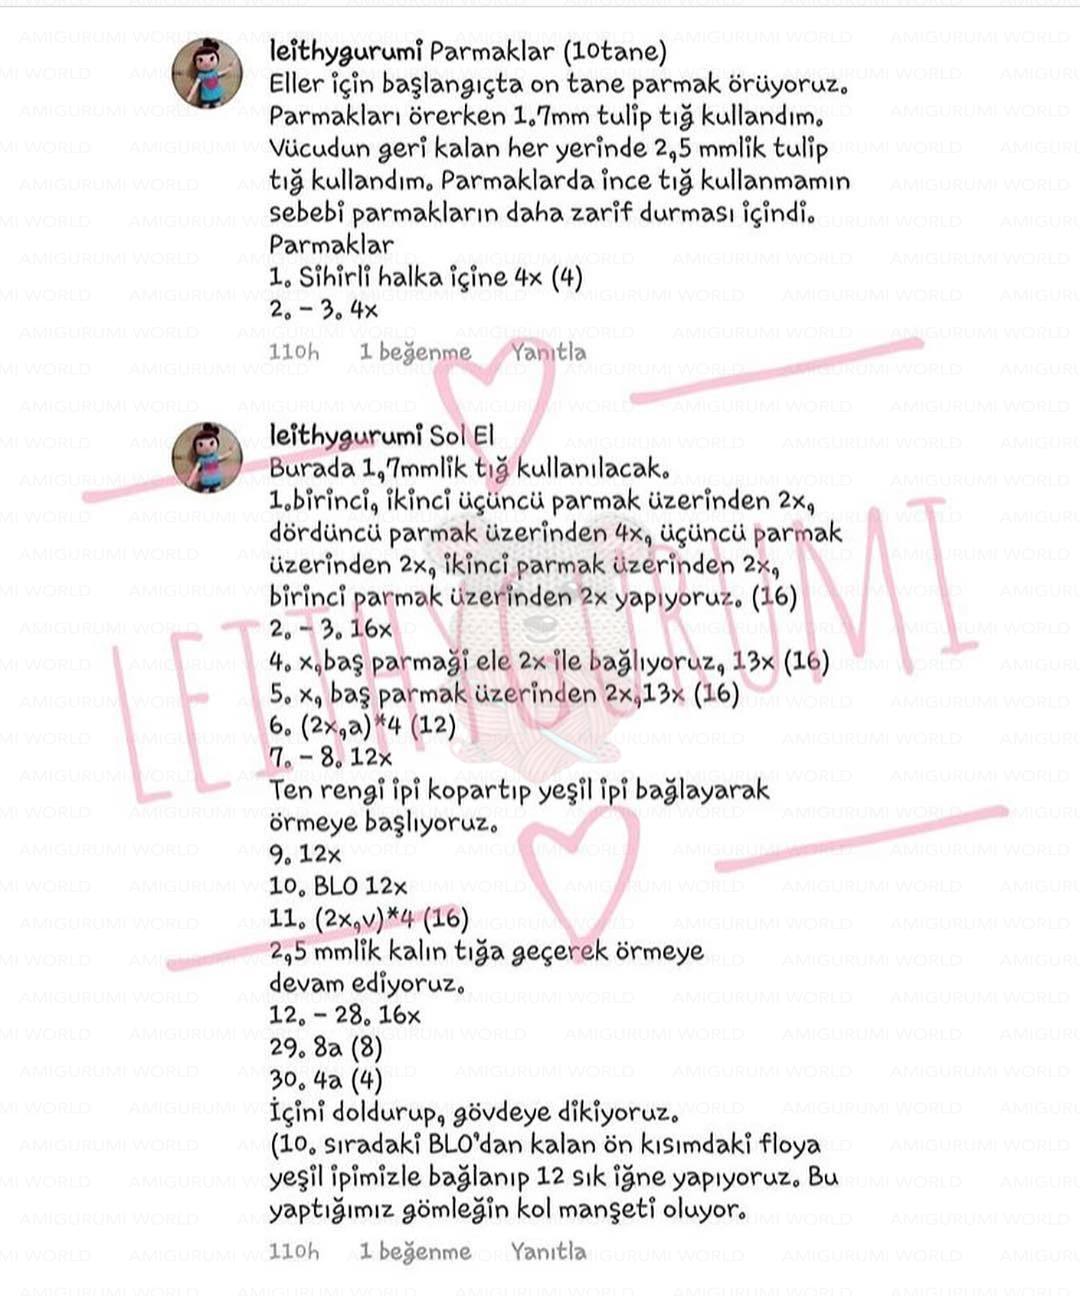 leithygurumi Parmaklar (10tane)
Eller için başlangıçta on tane parmak örüyoruz.
Parmakları örerken 1,7mm tulip tığ kullandım.
Vücudun geri kalan her yerinde 2,5 mmlik tulip
tığ kullandım. Parmaklarda ince tığ kullanmamın
sebebi parmakların daha zarif durması içindi.
Parmaklar
1. Sihirli halka içine 4x (4)
2. - 3. 4x
110h 1 beğenme Yanıtla
leithygurumi Sol El
Burada 1,7mmlik tığ kullanılacak.
1.birinci, ikinci üçüncü parmak üzerinden 2x,
dördüncü parmak üzerinden 4x, üçüncü parmak
üzerinden 2x, ikinci parmak üzerinden 2x,
birinci parmak üzerinden 2x yapıyoruz. (16)
2. - 3. 16x
4. x,baş parmaği ele 2x ile bağlıyoruz, 13x (16)
5. x, baş parmak üzerinden 2x,13x (16)
6. (2x,a)*4 (12)
7. - 8. 12x
Ten rengi ipi kopartıp yeşil ipi bağlayarak
örmeye başlıyoruz.
9. 12x
10. BLO 12x
11. (2x,v)*4 (16)
2,5 mmlik kalın tığa geçerek örmeye
devam ediyoruz.
12. - 28. 16x
29. 8a (8)
30. 4a (4)
İçini doldurup, gövdeye dikiyoruz.
(10. sıradaki BLO'dan kalan ön kısımdaki floya
yeşil ipimizle bağlanıp 12 sık iğne yapıyoruz. Bu
yaptığımız gömleğin kol manşeti oluyor.
110h 1 beğenme Yanıtla
LEITHYGURUMI
AMIGURUMI WORLD